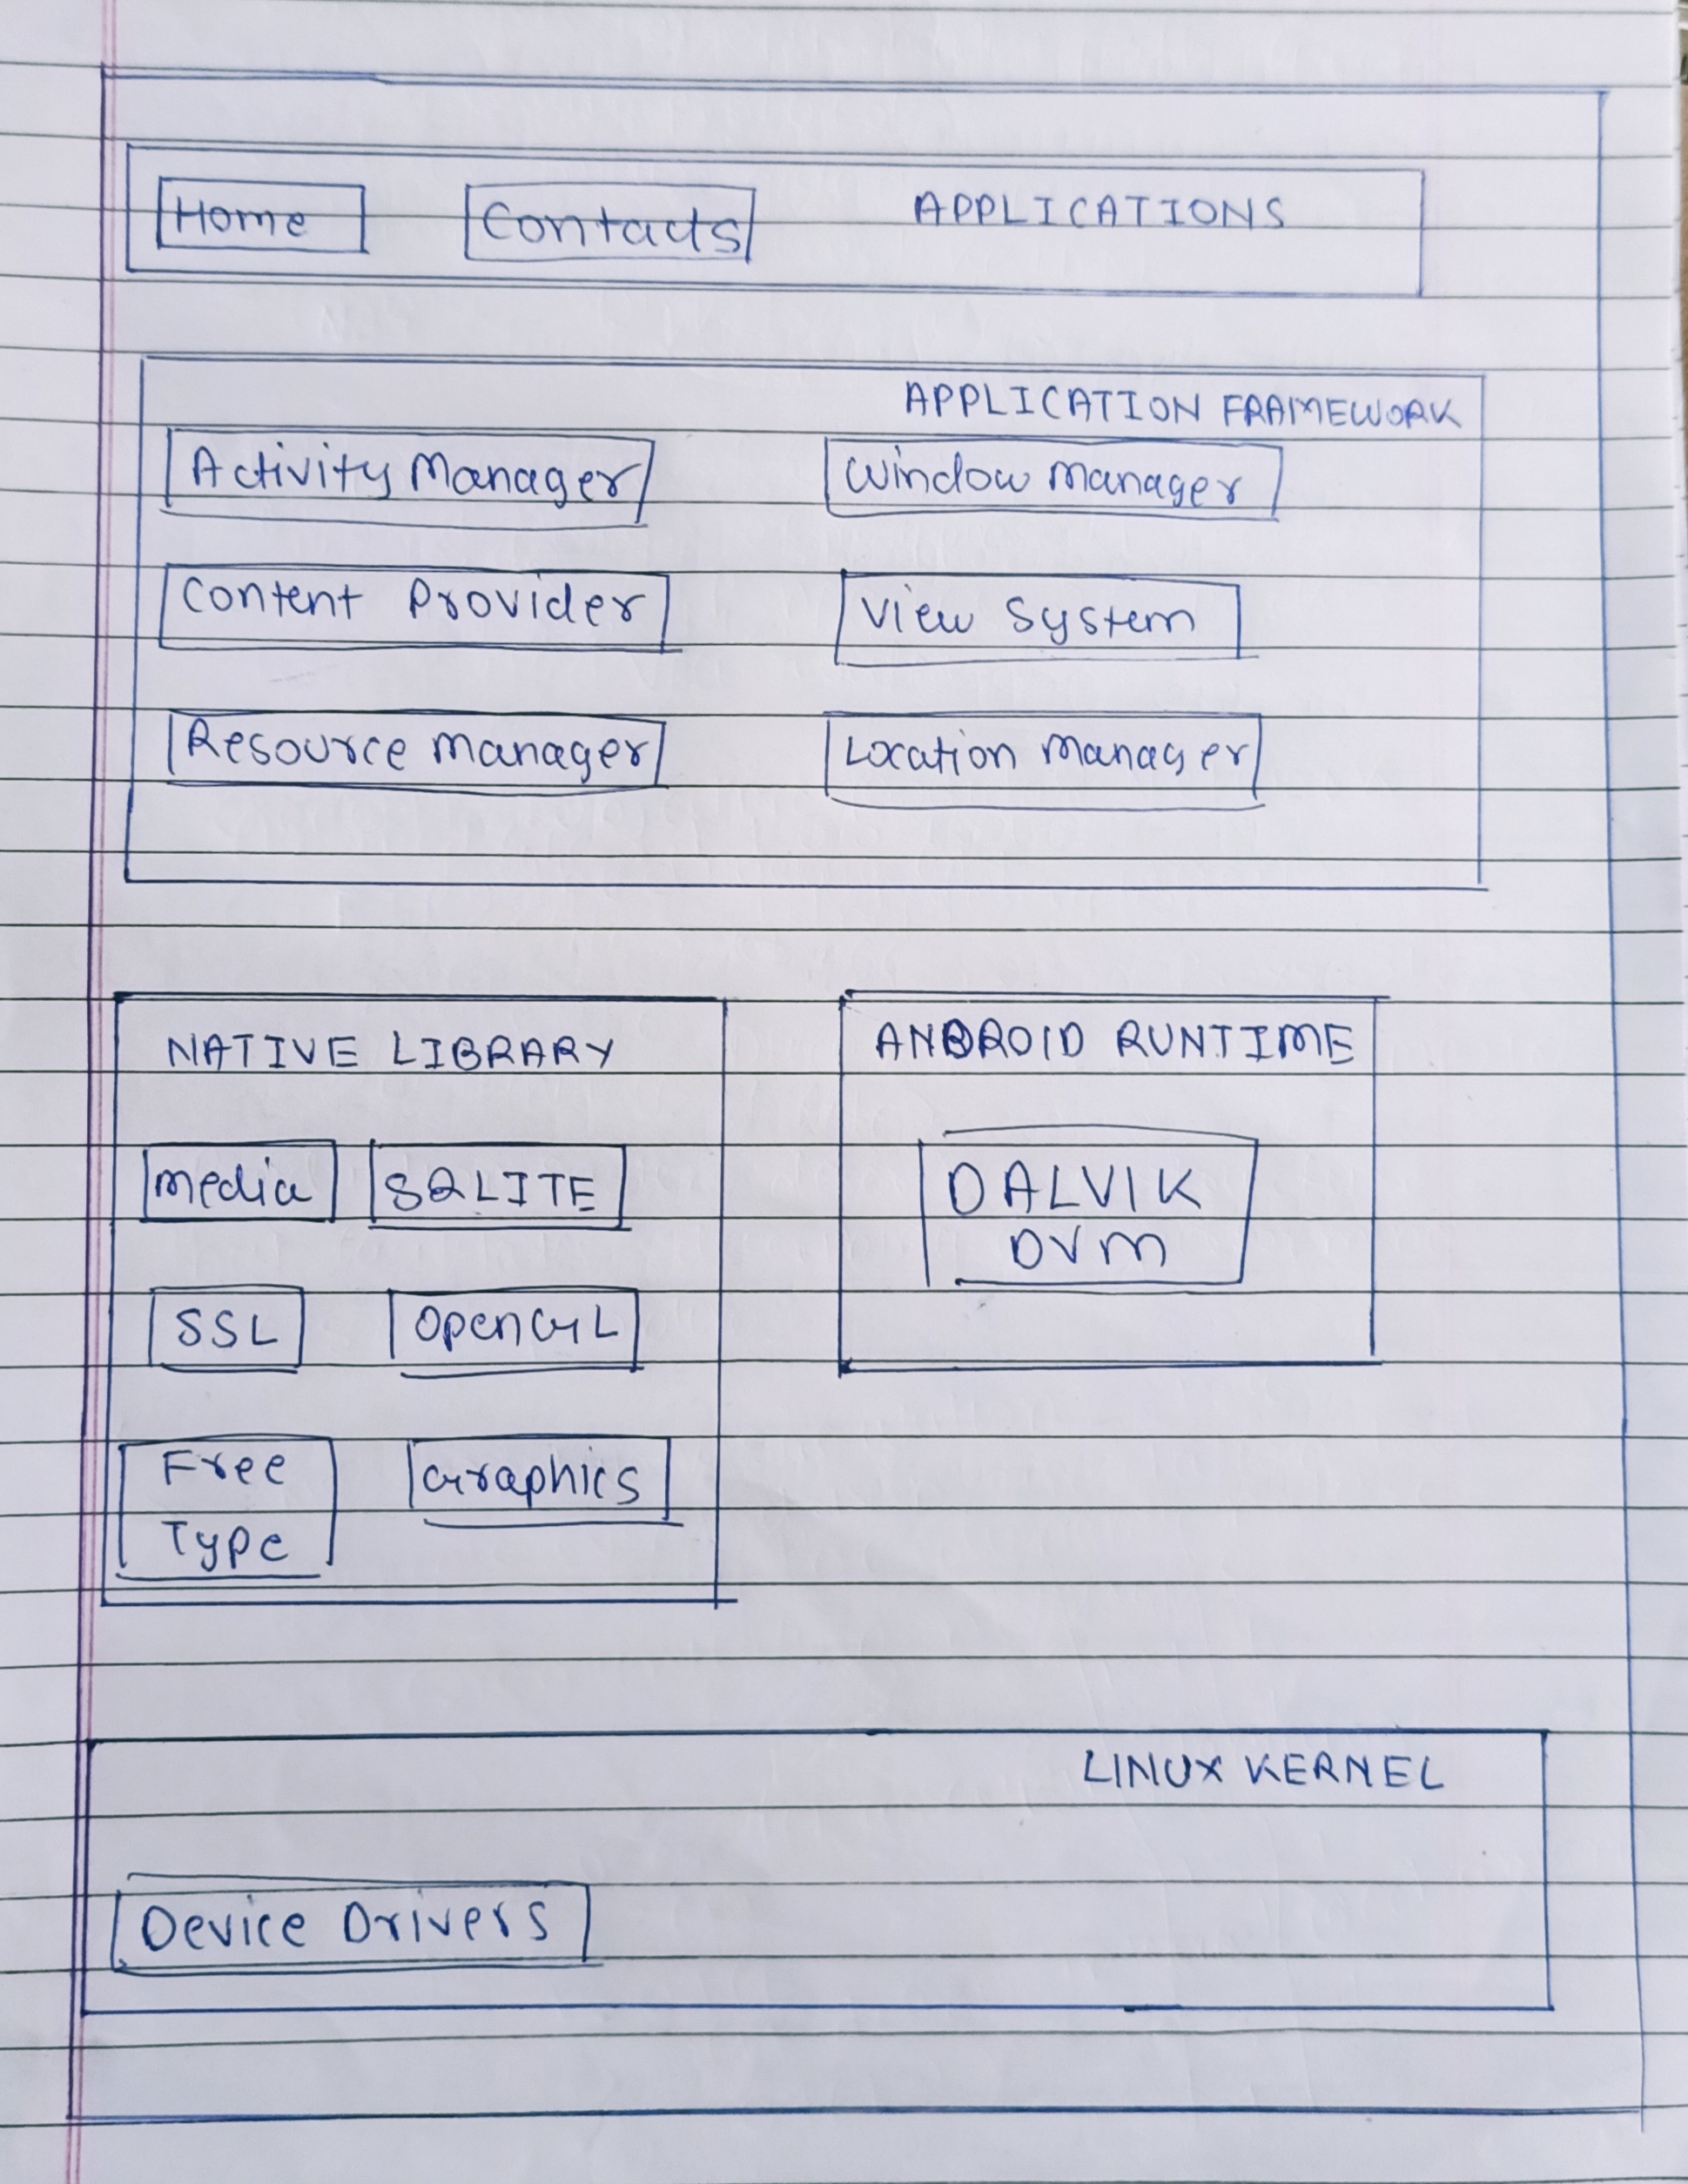 Home Contacts APPLICATIONS
APPLICATION FRAMEWORK
Activity Manager Window Manager
Content Provider View System
Resource Manager Location Manager
NATIVE LIBRARY
Media SQLITE
SSL OpenGL
Free
Type
Graphics
ANDROID RUNTIME
DALVIK
DVM
LINUX KERNEL
Device Drivers